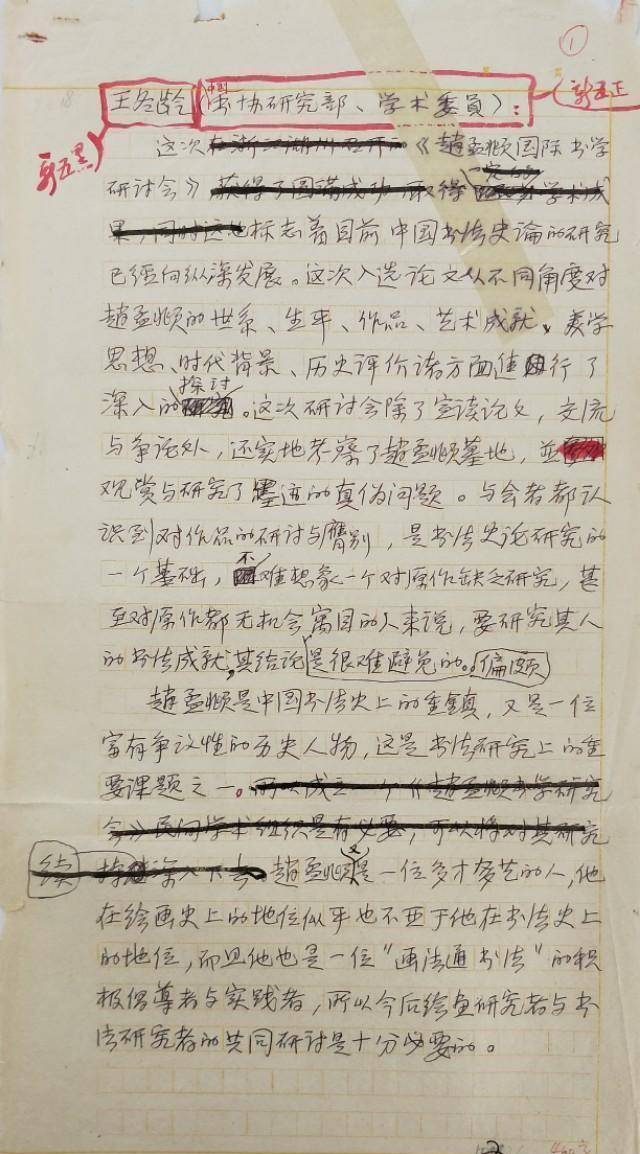 ①
王冬龄（中国书协研究部、学术委員）：
新五黑
新五正
这次在浙江湖州召开的《趙孟頫国际书学
研讨会》获得了圆满成功 取得一定的学术成
果，同时这也标志着目前中国书法史論的研究
已經向纵深发展。这次入选论文从不同角度对
趙孟頫的世系、生平、作品、艺术成就、美学
思想、时代背景、历史评价诸方面進行了
深入的探讨。这次研讨会除了宣读论文，交流
与争论外，还实地考察了趙孟頫墓地，並
观赏与研究了墨迹的真伪问题。与会者都认
识到对作品的研讨与鹰别，是书法史论研究的
一个基础，不难想象一个对原作缺乏研究，甚
至对原作都无机会寓目的人来说，要研究其人
的书法成就，其结论是很难避免的。偏颇
趙孟頫是中国书法史上的重鎮，又是一位
富有争议性的历史人物，这是书法研究上的重
要课题之一。所以成立一个《趙孟頫书学研究
会》民间学术组织是有必要，可以将对其研究
续 持续深入下去。趙孟頫又是一位多才多艺的人，他
在绘画史上的地位似乎也不亚于他在书法史上
的地位，而且他也是一位“画法通书法”的积
极倡导者与实践者，所以今后绘画研究者与书
法研究者的共同研讨是十分必要的。